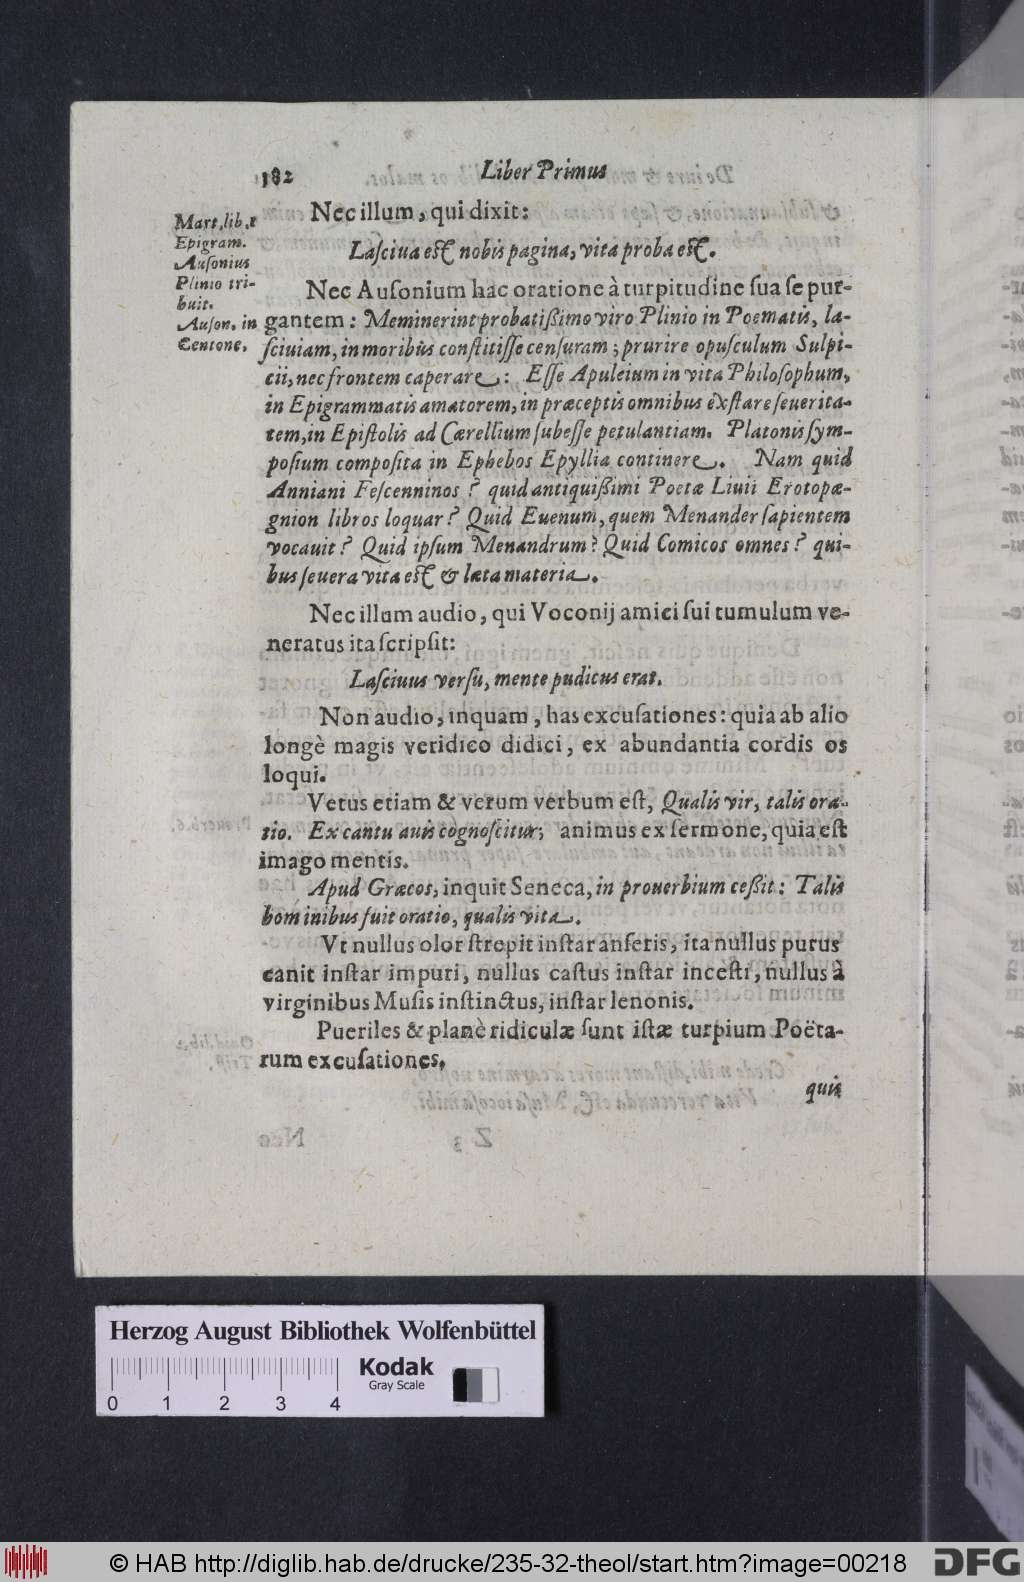 182 Liber Primus
Nec illum, qui dixit:
Mart. lib. 1
Epigram.
Ausonius
Plinio tri-
buit.
Auson. in
Centone.
Lasciua est nobis pagina, vita proba est.
Nec Ausonium hac oratione à turpitudine sua se pur-
gantem: Meminerint probatißimo viro Plinio in Poematis, la-
sciuiam, in moribus constitisse censuram; prurire opusculum Sulpi-
cii, nec frontem caperare: Esse Apuleium in vita Philosophum,
in Epigrammatis amatorem, in præceptis omnibus exstare seuerita-
tem, in Epistolis ad Cærellium subesse petulantiam. Platonis sym-
posium composita in Ephebos Epyllia continere. Nam quid
Anniani Fescenninos? quid antiquißimi Poetæ Liuii Erotopæ-
gnion libros loquar? Quid Euenum, quem Menander sapientem
vocauit? Quid ipsum Menandrum? Quid Comicos omnes? qui-
bus seuera vita est & læta materia.
Nec illum audio, qui Voconij amici sui tumulum ve-
neratus ita scripsit:
Lasciuus versu, mente pudicus erat.
Non audio, inquam, has excusationes: quia ab alio
longè magis veridico didici, ex abundantia cordis os
loqui.
Vetus etiam & verum verbum est, Qualis vir, talis ora-
tio. Ex cantu auis cognoscitur; animus ex sermone, quia est
imago mentis.
Apud Græcos, inquit Seneca, in prouerbium ceßit: Talis
hominibus fuit oratio, qualis vita.
Vt nullus olor strepit instar anseris, ita nullus purus
canit instar impuri, nullus castus instar incesti, nullus à
virginibus Musis instinctus, instar lenonis.
Pueriles & planè ridiculæ sunt istæ turpium Poëta-
rum excusationes,
quis
Herzog August Bibliothek Wolfenbüttel
Kodak
Gray Scale
0 1 2 3 4
© HAB http://diglib.hab.de/drucke/235-32-theol/start.htm?image=00218
DFG